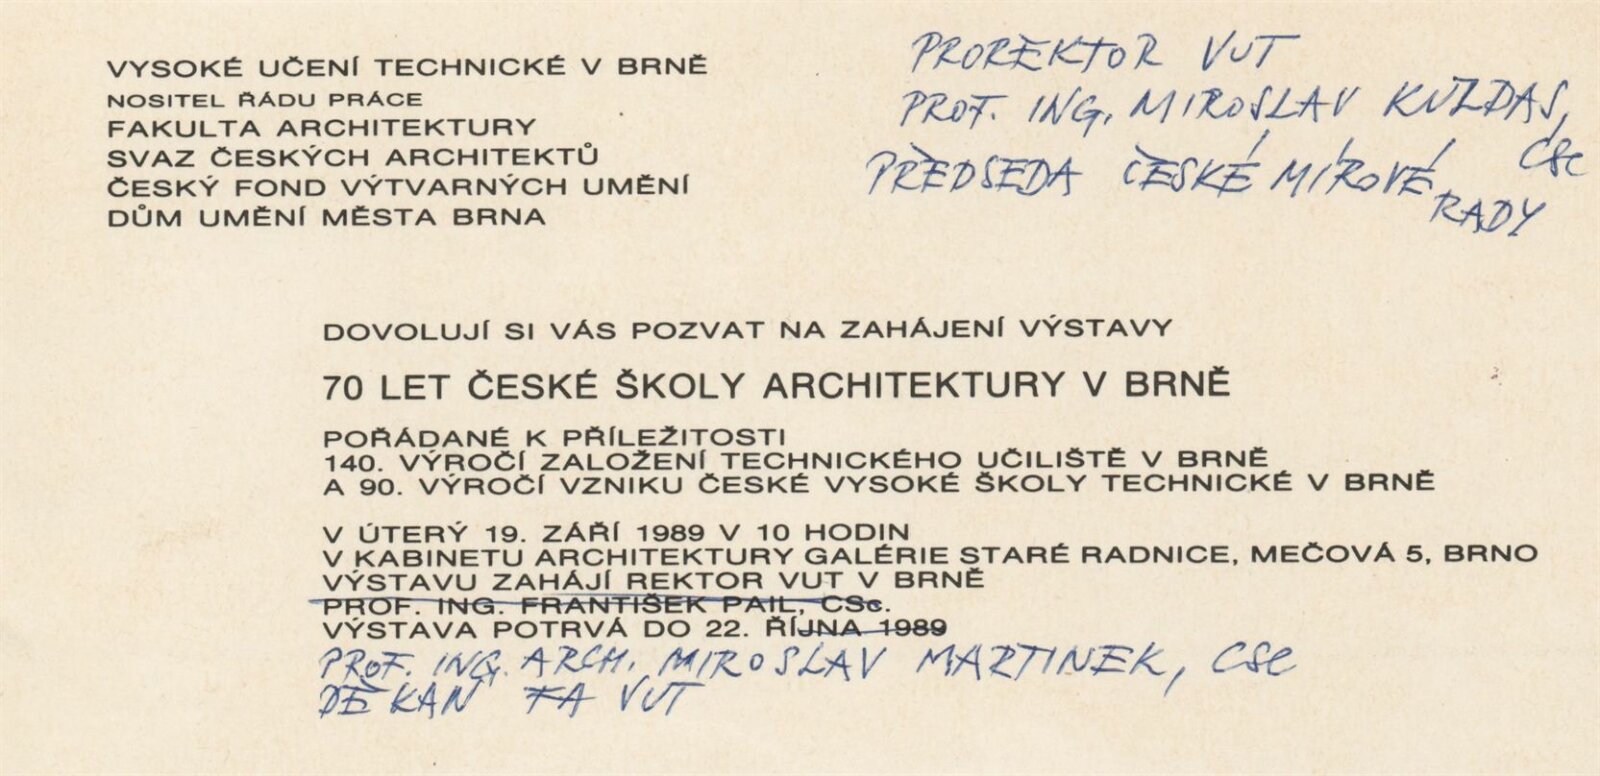 VYSOKÉ UČENÍ TECHNICKÉ V BRNĚ
NOSITEL ŘÁDU PRÁCE
FAKULTA ARCHITEKTURY
SVAZ ČESKÝCH ARCHITEKTŮ
ČESKÝ FOND VÝTVARNÝCH UMĚNÍ
DŮM UMĚNÍ MĚSTA BRNA
PROREKTOR VUT
PROF. ING. MIROSLAV KUZDAS,
CSc
PŘEDSEDA ČESKÉ MÍROVÉ
RADY
DOVOLUJÍ SI VÁS POZVAT NA ZAHÁJENÍ VÝSTAVY
70 LET ČESKÉ ŠKOLY ARCHITEKTURY V BRNĚ
POŘÁDANÉ K PŘÍLEŽITOSTI
140. VÝROČÍ ZALOŽENÍ TECHNICKÉHO UČILIŠTĚ V BRNĚ
A 90. VÝROČÍ VZNIKU ČESKÉ VYSOKÉ ŠKOLY TECHNICKÉ V BRNĚ
V ÚTERÝ 19. ZÁŘÍ 1989 V 10 HODIN
V KABINETU ARCHITEKTURY GALÉRIE STARÉ RADNICE, MEČOVÁ 5, BRNO
VÝSTAVU ZAHÁJÍ REKTOR VUT V BRNĚ
PROF. ING. FRANTIŠEK PAIL, CSc.
VÝSTAVA POTRVÁ DO 22. ŘÍJNA 1989
PROF. ING. ARCH. MIROSLAV MARTINEK, CSc
DĚKAN FA VUT